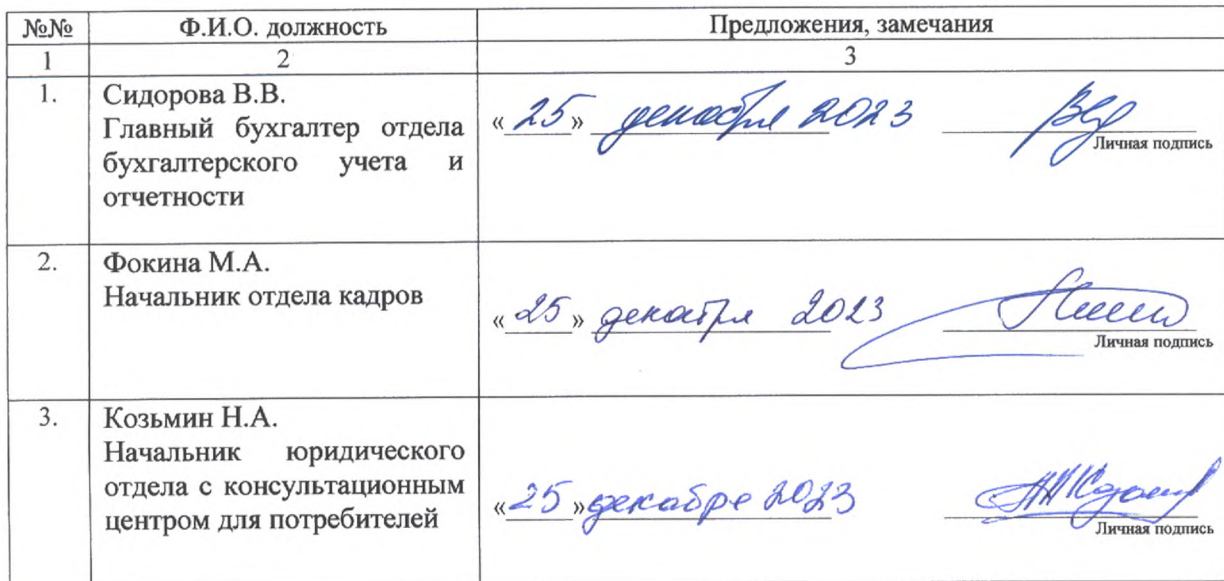 №№ Ф.И.О. должность Предложения, замечания
1 2 3
1. Сидорова В.В.
Главный бухгалтер отдела
бухгалтерского учета и
отчетности
«25» декабря 2023
Личная подпись
2. Фокина М.А.
Начальник отдела кадров
«25» декабря 2023
Личная подпись
3. Козьмин Н.А.
Начальник юридического
отдела с консультационным
центром для потребителей
«25» декабре 2023
Личная подпись